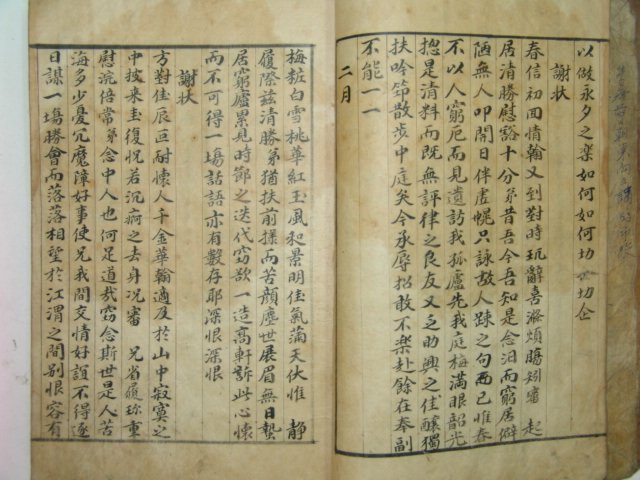 以做永夕之楽如何如何切企切企
謝状
春信初回情翰又到對時玩辭喜滌煩膓矧審 起
居清勝慰豁十分弟昔吾今吾知是念汨而窮居僻
陋無人叩開日伴虛幌只詠故人踈之句而已惟春
不以人窮厄而見遺訪我孤盧先我庭梅滿眼韶光
揔是清料而既無評律之良友又乏助興之佳釀獨
扶吟笻散步中庭矣今承辱招敢不楽赴餘在奉副
不能一一
二月
梅粧白雪桃華紅玉風和景明佳氣蒲天伏惟 静
履際兹清勝弟猶扶前㨾而苦顔塵世展眉無日蟄
居窮廬累見時節之迭代窃欲一造高軒訴此心懐
而不可得一塲話語亦有數存耶深恨深恨
謝状
方對佳辰叵耐懐人千金華翰適及於山中寂寞之
中披来圭復怳若沉痾之去身况審 兄省履珎重
慰浣倍常弟念中人也何足道㦲窃念斯世是人苦
海多少憂冗魔障好事使兄我間交情好誼不得逐
日謀一塲勝會而落落相望於江渭之間别恨容有